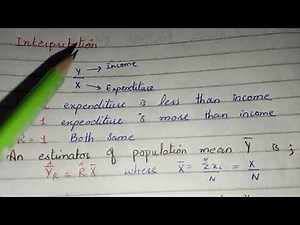 Interpretation
Y → Income
X → Expenditure
1 expenditure is less than income
1 expenditure is more than income;
R = 1 Both same
An estimator of population mean Ȳ is;
Ȳ̂_R = R̂ X̄ where X̄ = Σxᵢ/N = X/N